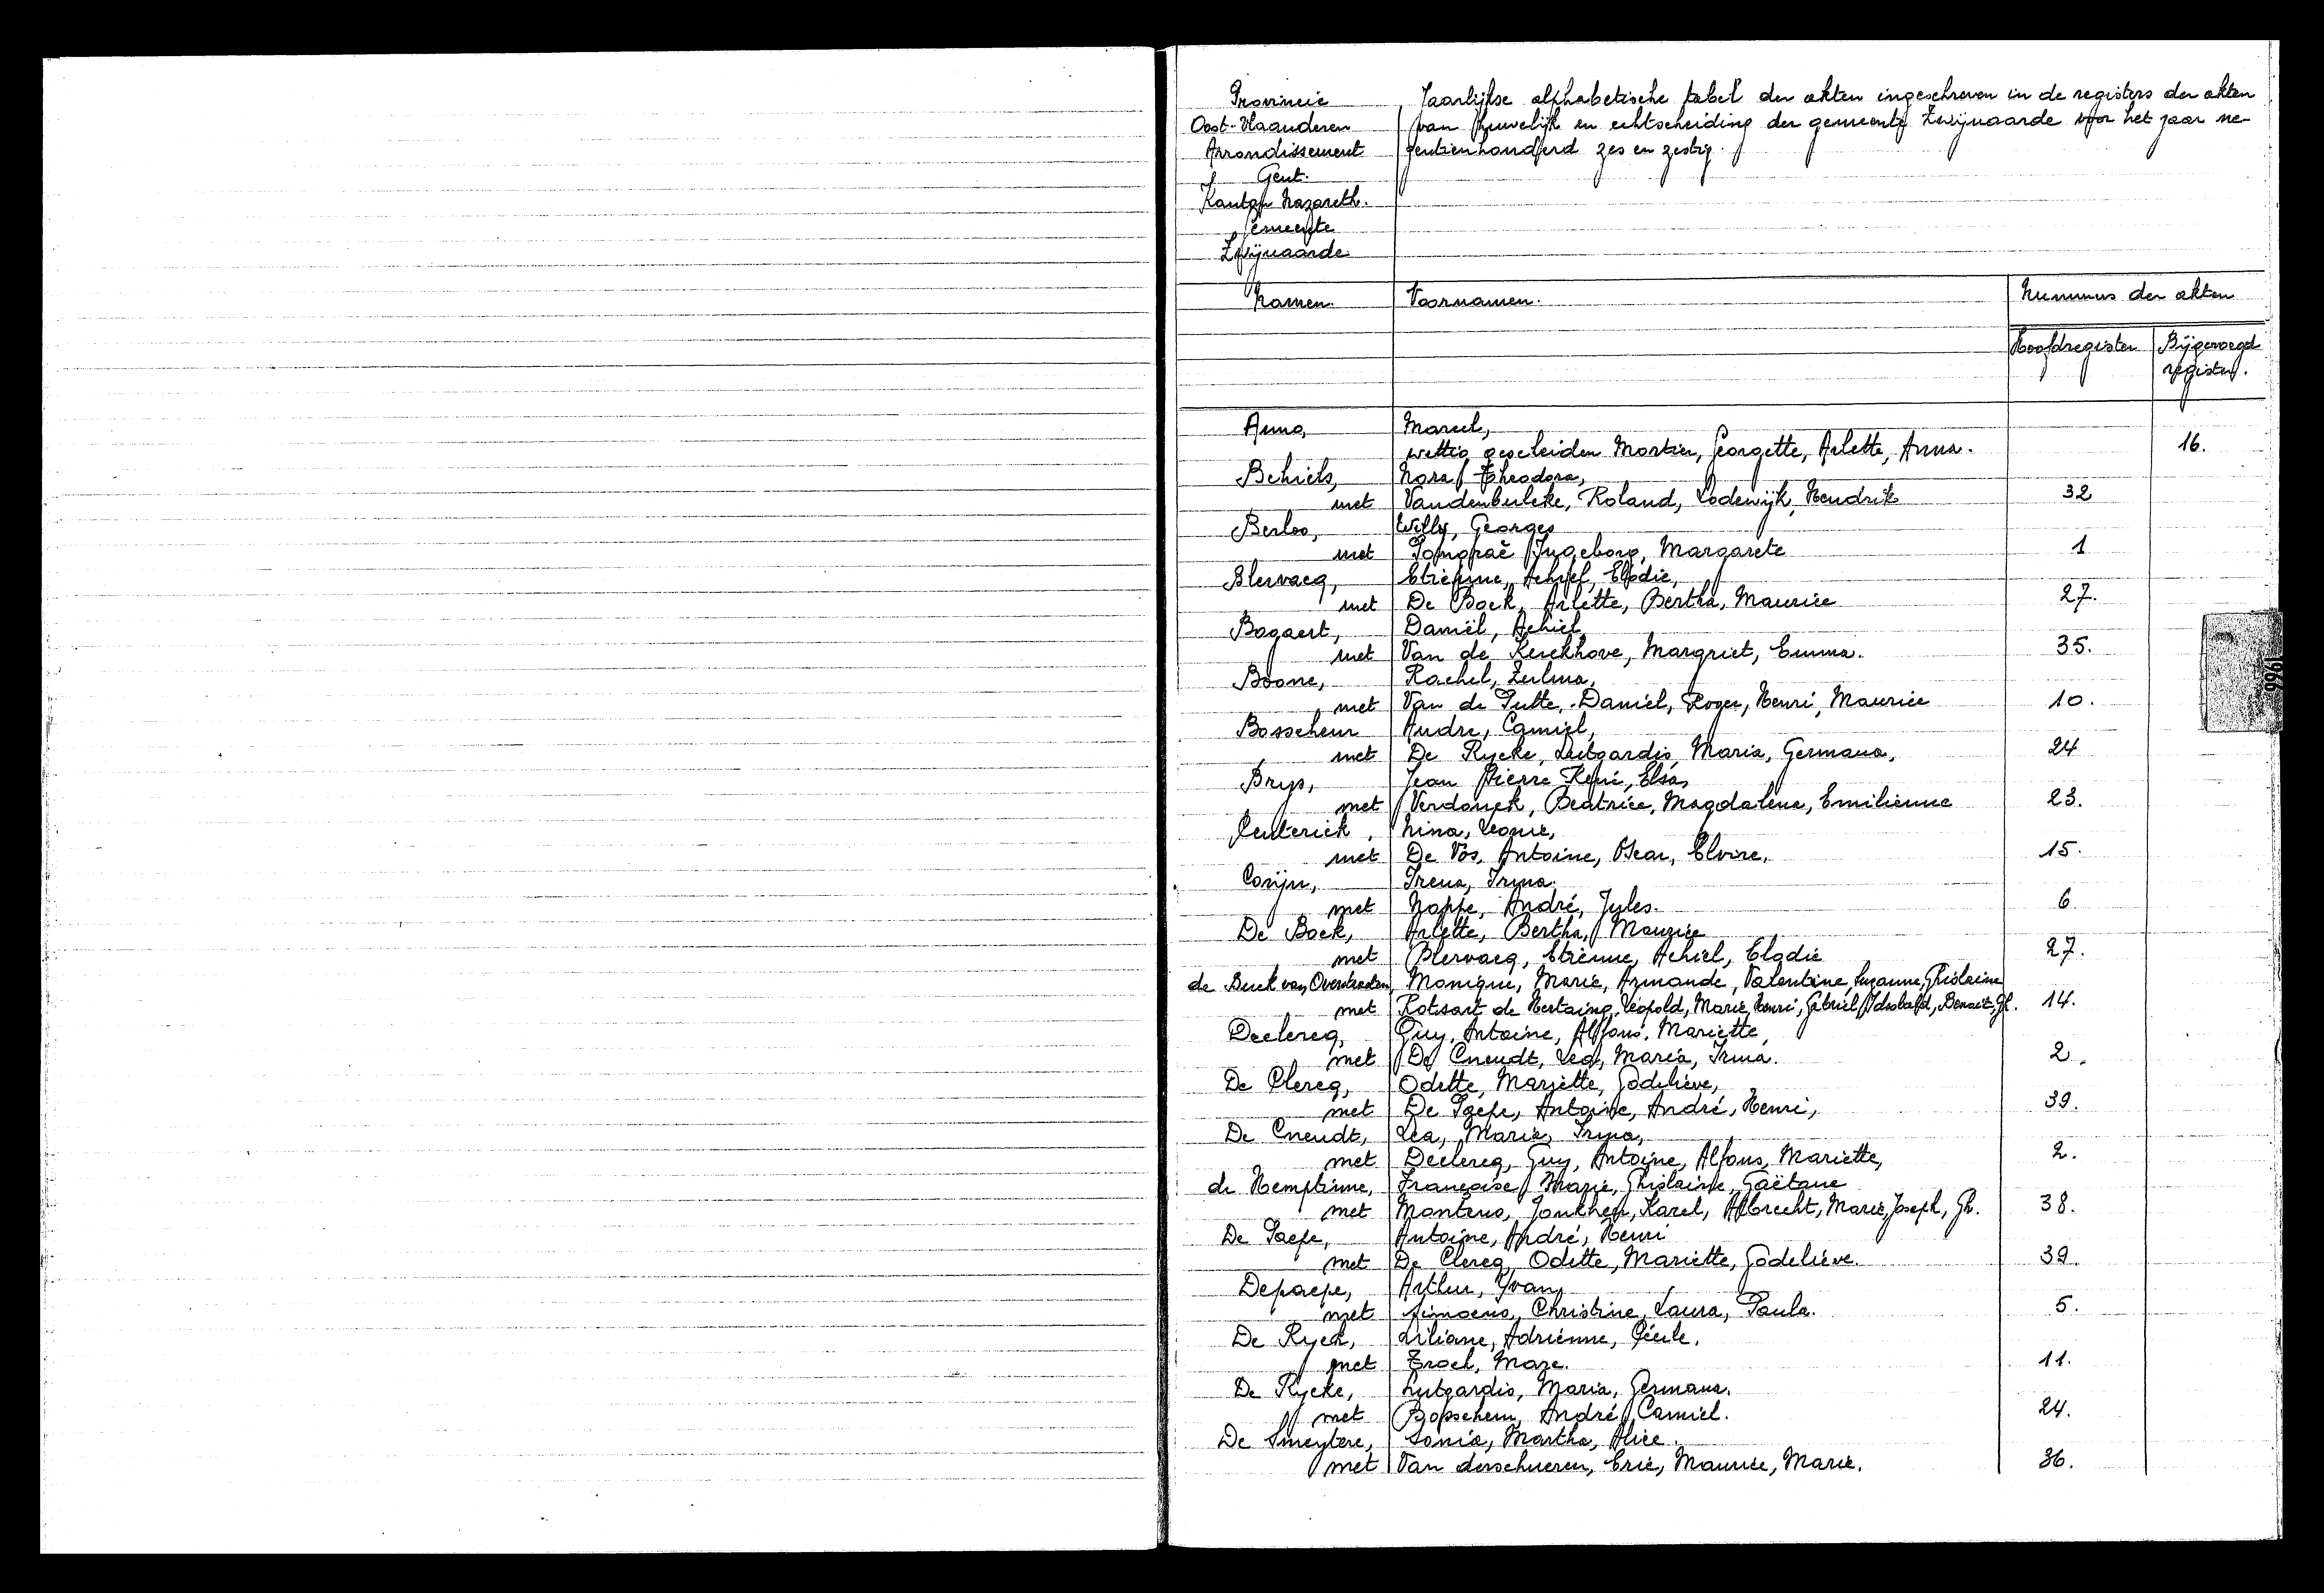 Provincie
Oost-Vlaanderen
Arrondissement
Gent.
Kanton Nazareth.
Gemeente
Zwijnaarde
Jaarlijkse alphabetische tabel der akten ingeschreven in de registers der akten
van huwelijk en echtscheiding der gemeente Zwijnaarde voor het jaar ne-
gentienhonderd zes en zestig.
Namen. Voornamen. Nummers der akten
Hoofdregister Bijgevoegd
register.
Anna, Marcel,
wettig gescheiden Mortier, Georgette, Arlette, Anna. 16.
Behiels, Nora, Theodora,
met Vandenbulcke, Roland, Lodewijk, Hendrik 32
Berloo, Willy, Georges
met Ingeborg, Margarete 1
Blervacq, Etienne, Achiel, Elodie,
met De Bock, Arlette, Bertha, Maurice 27.
Bogaert, Daniël, Achiel,
met Van de Kerckhove, Margriet, Emma. 35.
Boone, Rachel, Zulma,
met Van de Putte, Daniël, Roger, Henri, Maurice 10.
Busschem André, Camiel,
met De Rycke, Lutgardis, Maria, Germana, 24
Brys, Jean Pierre René, Elsa,
met Verdonck, Beatrice, Magdalena, Emilienne 23.
Centerick, Nina, Leonie,
met De Vos, Antoine, Oscar, Elvire. 15.
Corijn, Irena, Irma.
met Noppe, André, Jules. 6
De Bock, Arlette, Bertha, Maurice
met Blervacq, Etienne, Achiel, Elodie 27.
de Buck van Overstraeten, Monique, Marie, Armande, Valentine, Suzanne, Ghislaine
met Rotsart de Hertaing, Léopold, Marie, Henri, Gabriel, Idesbald, Benoit, Gh. 14.
Declercq, Guy, Antoine, Alfons, Mariette,
met De Cneudt, Lea, Maria, Irma. 2.
De Clercq, Odette, Mariette, Godelieve,
met De Paepe, Antoine, André, Henri, 39.
De Cneudt, Lea, Maria, Irma,
met Declercq, Guy, Antoine, Alfons, Mariette, 2.
de Hemptinne, Françoise, Marie, Ghislaine, Gaëtane
met Montens, Jonkheer, Karel, Albrecht, Marie, Joseph, Gh. 38.
De Paepe, Antoine, André, Henri
met De Clercq, Odette, Mariette, Godelieve. 39.
Depaepe, Arthur, Yvan,
met Simoens, Christine, Laura, Paula. 5.
De Ryck, Liliane, Adrienne, Cécile.
met Troel, Marc. 11.
De Rycke, Lutgardis, Maria, Germana.
met Bosschem, André, Camiel. 24.
De Smeytere, Sonia, Martha, Alice.
met Van derschueren, Eric, Maurice, Marie. 36.
1966